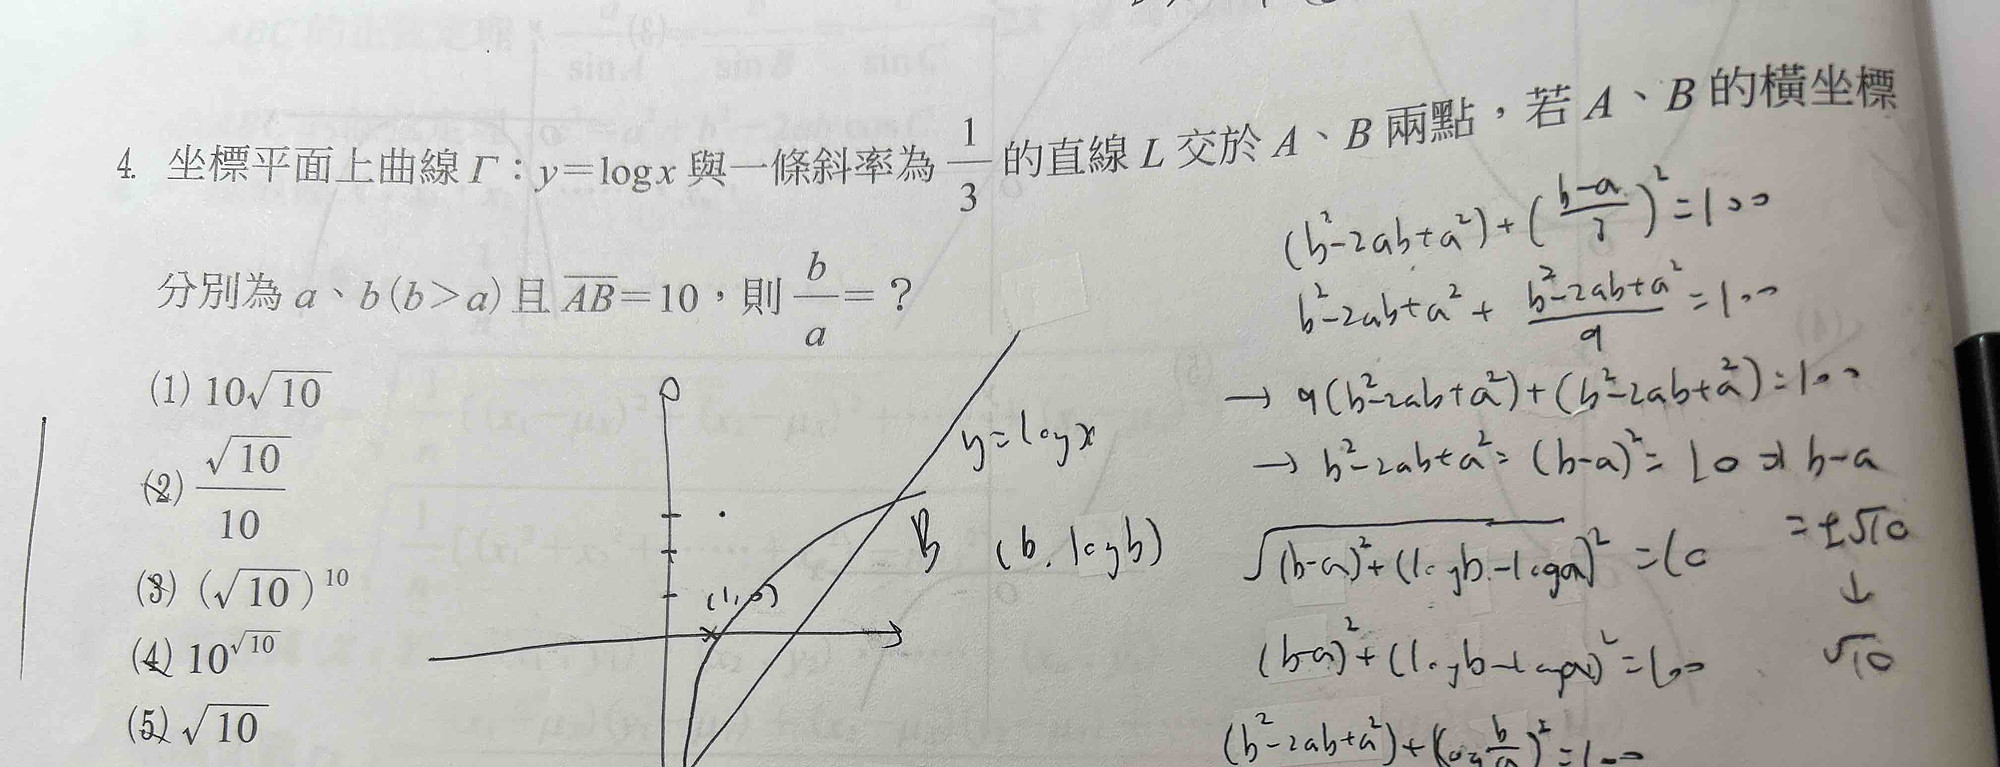 4. 坐標平面上曲線 Γ：y=logx 與一條斜率為 1/3 的直線 L 交於 A、B 兩點，若 A、B 的橫坐標
分別為 a、b(b>a) 且 AB=10，則 b/a=？
(1) 10√10
(2) √10/10
(3) (√10)^10
(4) 10^√10
(5) √10
y=logx
(1,0)
B (b, logb)
(b²-2ab+a²)+((b-a)/3)²=100
b²-2ab+a²+(b²-2ab+a²)/9=100
→ 9(b²-2ab+a²)+(b²-2ab+a²)=100
→ b²-2ab+a²=(b-a)²=10 → b-a
=±√10
↓
√10
√(b-a)²+(logb-loga)²=10
(b-a)²+(logb-loga)²=100
(b²-2ab+a²)+(log b/a)²=100